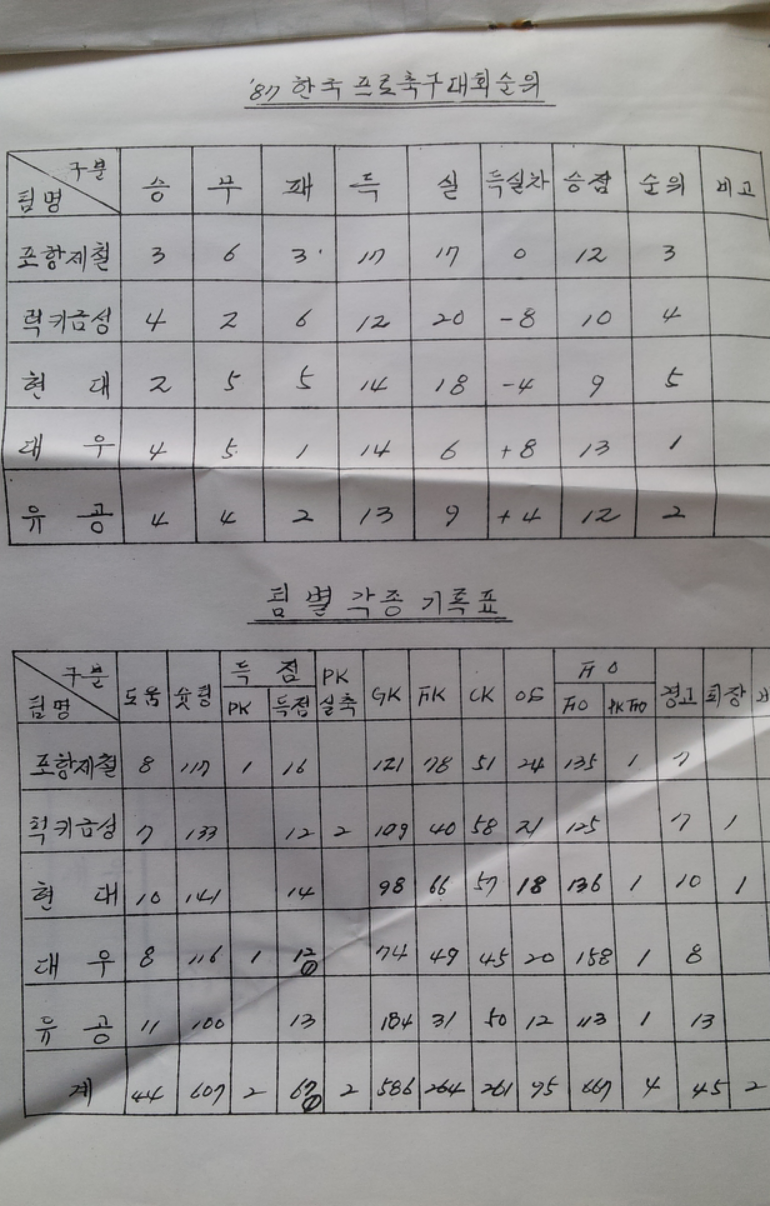 '87 한국 프로축구대회순위
구분 팀명 승 무 패 득 실 득실차 승점 순위 비고
포항제철 3 6 3 17 17 0 12 3
럭키금성 4 2 6 12 20 -8 10 4
현 대 2 5 5 14 18 -4 9 5
대 우 4 5 1 14 6 +8 13 1
유 공 4 4 2 13 9 +4 12 2
팀별 각종 기록표
구분 득 점 PK 파 울
팀명 도움 슛팅 PK 득점 실축 GK FK CK OS 경고 퇴장
포항제철 8 117 1 16 121 78 51 24 135 1 7
럭키금성 7 133 12 2 109 40 58 21 125 7 1
현 대 10 141 14 98 66 57 18 136 1 10 1
대 우 8 116 1 12 74 49 45 20 158 1 8
유 공 11 100 13 184 31 50 12 113 1 13
계 44 607 2 67 2 586 264 261 95 667 4 45 2